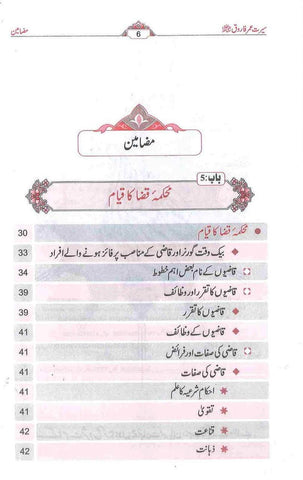 سیرت عمر فاروق رضی اللہ عنہ 6 مضامین
مضامین
باب:5
محکمۂ قضا کا قیام
محکمۂ قضا کا قیام 30
بیک وقت گورنر اور قاضی کے مناصب پر فائز ہونے والے افراد 33
قاضیوں کے نام بعض اہم خطوط 34
قاضیوں کا تقرر اور وظائف 39
قاضیوں کا تقرر 39
قاضیوں کے وظائف 41
قاضی کی صفات اور فرائض 41
قاضی کی صفات 41
احکام شرعیہ کا علم 41
تقویٰ 41
قناعت 42
ذہانت 42